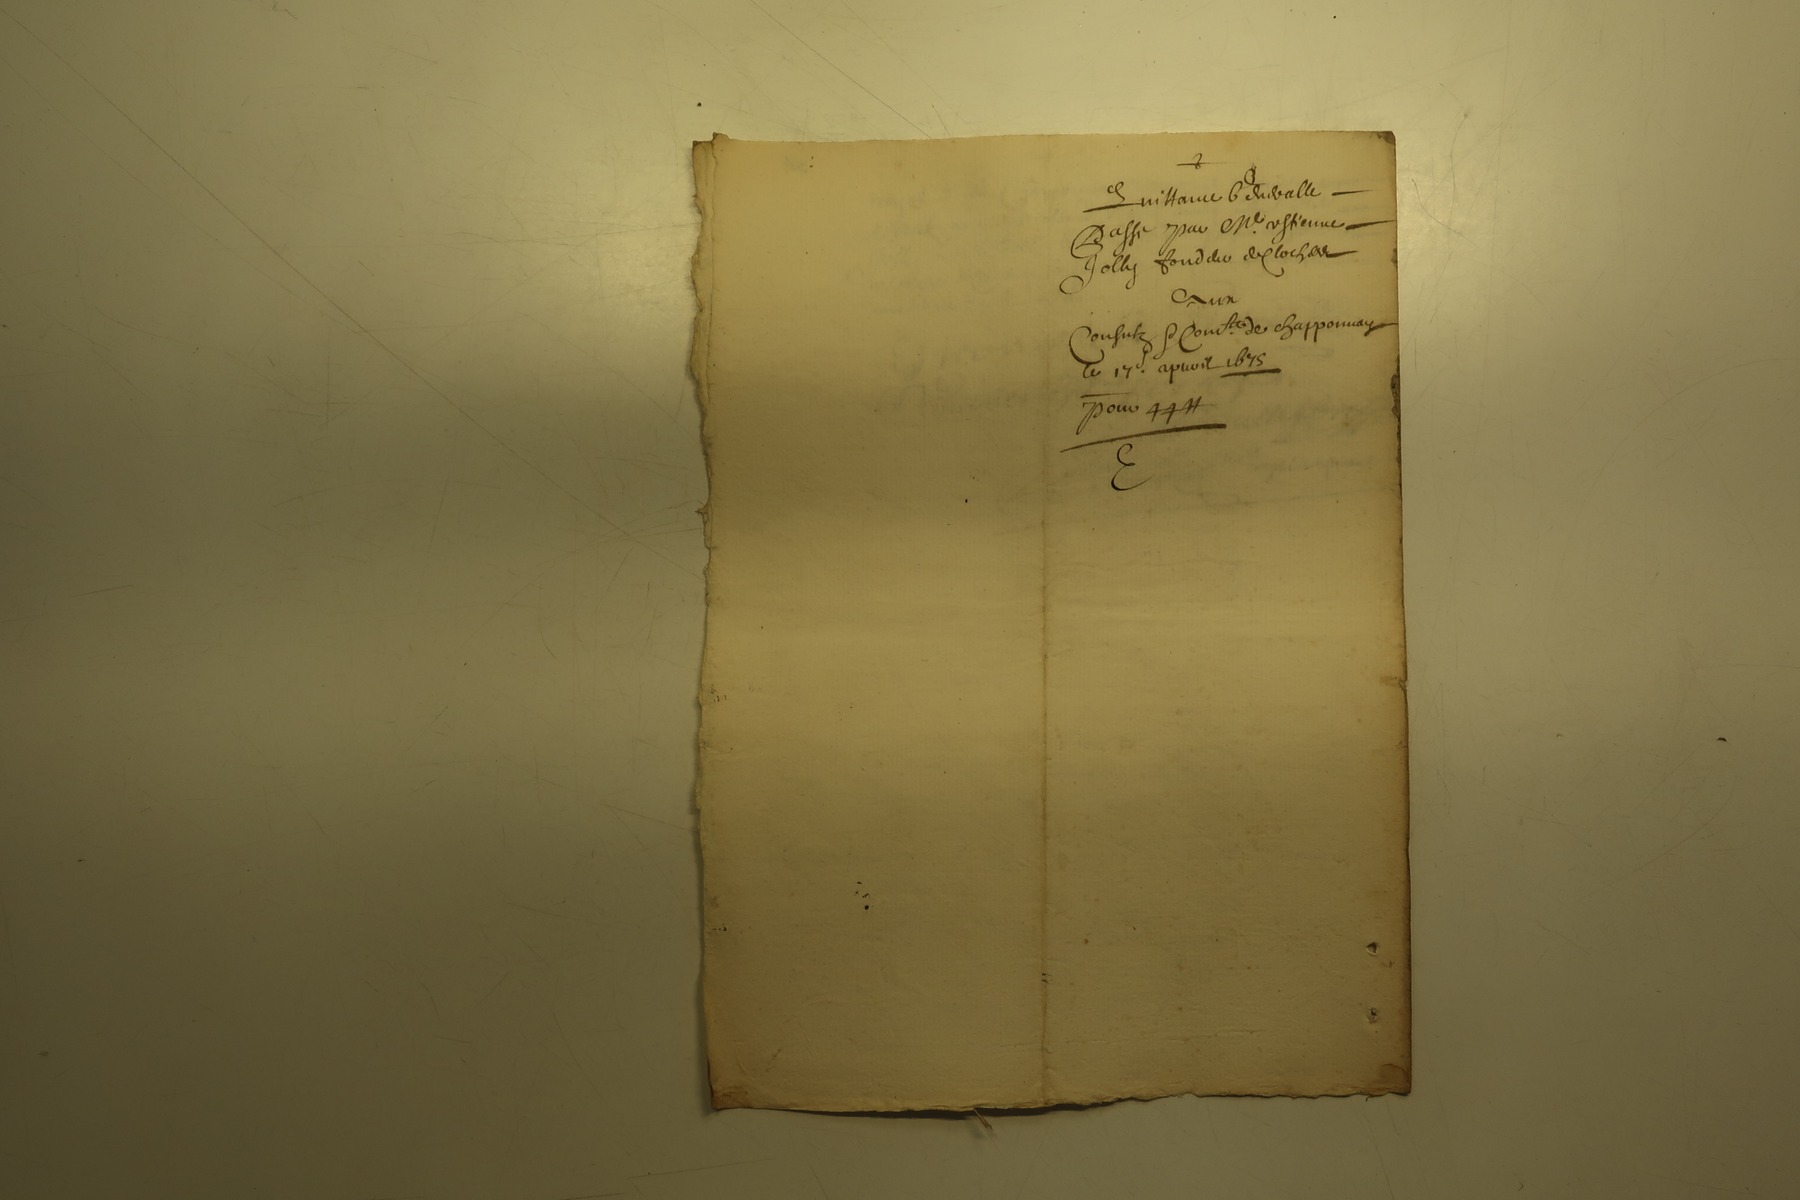 2
Quittance
Passe par Me estienne
Jolly fondeur de cloches
Aux
Consulz & Com.te de chapponnay
le 17e apvril 1675
pour 44 ₶